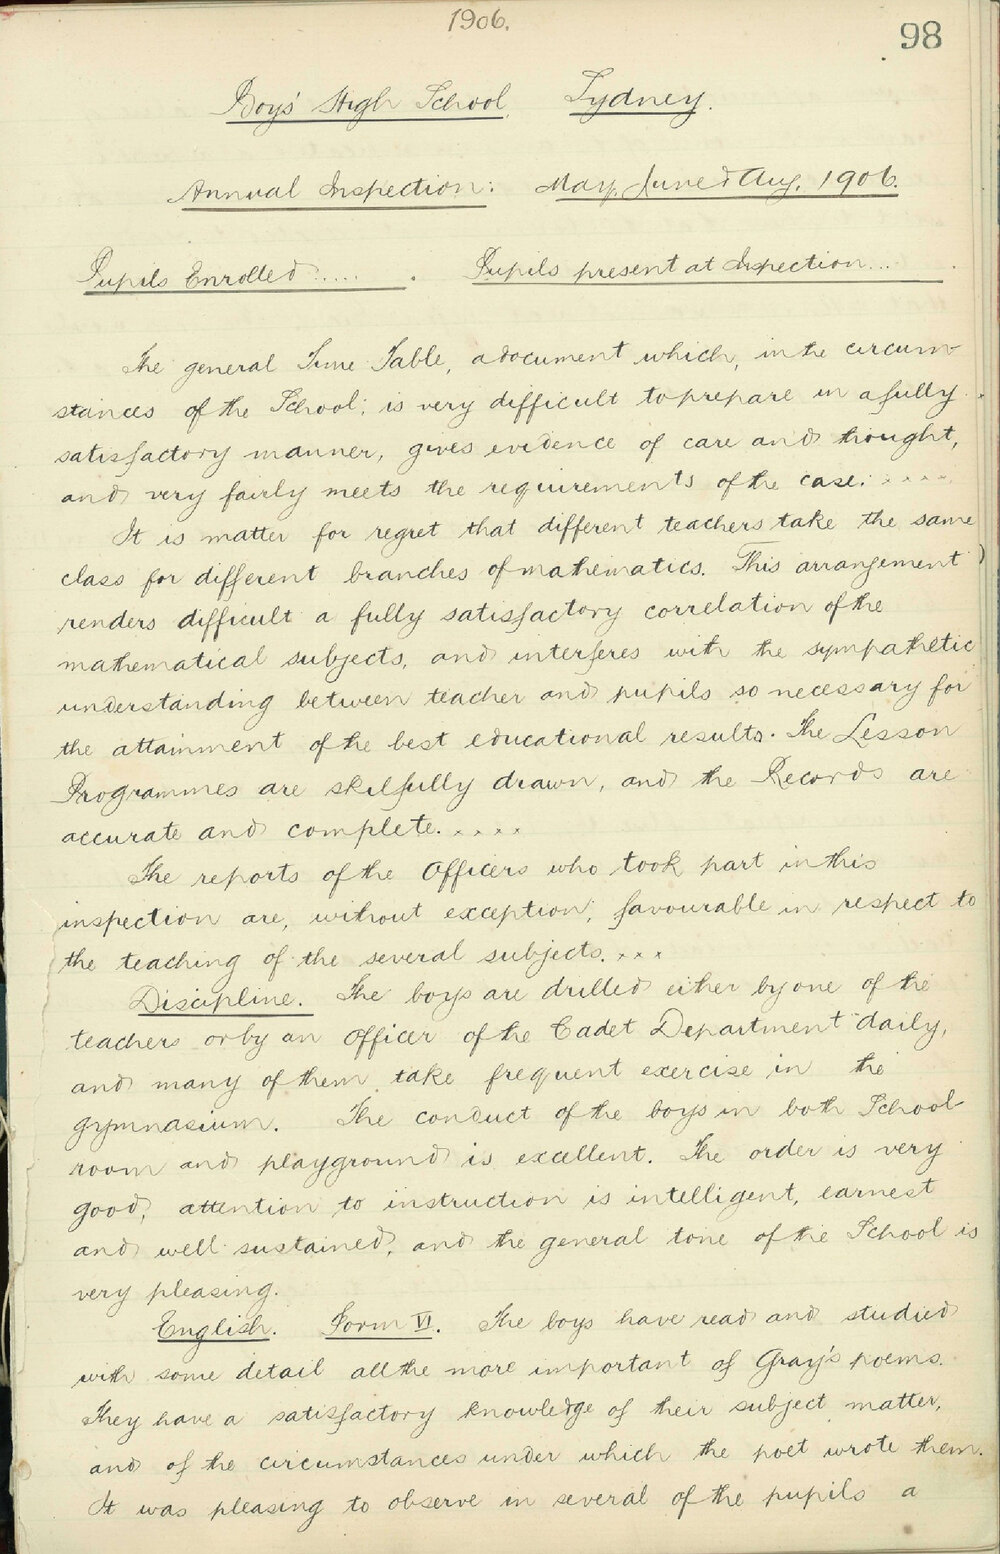 1906.
98
Boys' High School, Sydney.
Annual Inspection: May, June & Aug. 1906.
Pupils Enrolled ..... . Pupils present at Inspection... .
The general Time Table, a document which, in the circum-
stances of the School, is very difficult to prepare in a fully
satisfactory manner, gives evidence of care and thought,
and very fairly meets the requirements of the case. . . . .
It is matter for regret that different teachers take the same
class for different branches of mathematics. This arrangement
renders difficult a fully satisfactory correlation of the
mathematical subjects, and interferes with the sympathetic
understanding between teacher and pupils so necessary for
the attainment of the best educational results. The Lesson
Programmes are skilfully drawn, and the Records are
accurate and complete. . . . .
The reports of the Officers who took part in this
inspection are, without exception, favourable in respect to
the teaching of the several subjects. . . .
Discipline. The boys are drilled either by one of the
teachers or by an Officer of the Cadet Department daily,
and many of them take frequent exercise in the
gymnasium. The conduct of the boys in both School
room and playground is excellent. The order is very
good, attention to instruction is intelligent, earnest
and well sustained, and the general tone of the School is
very pleasing.
English. Form VI. The boys have read and studied
with some detail all the more important of Gray's poems.
They have a satisfactory knowledge of their subject matter,
and of the circumstances under which the poet wrote them.
It was pleasing to observe in several of the pupils a